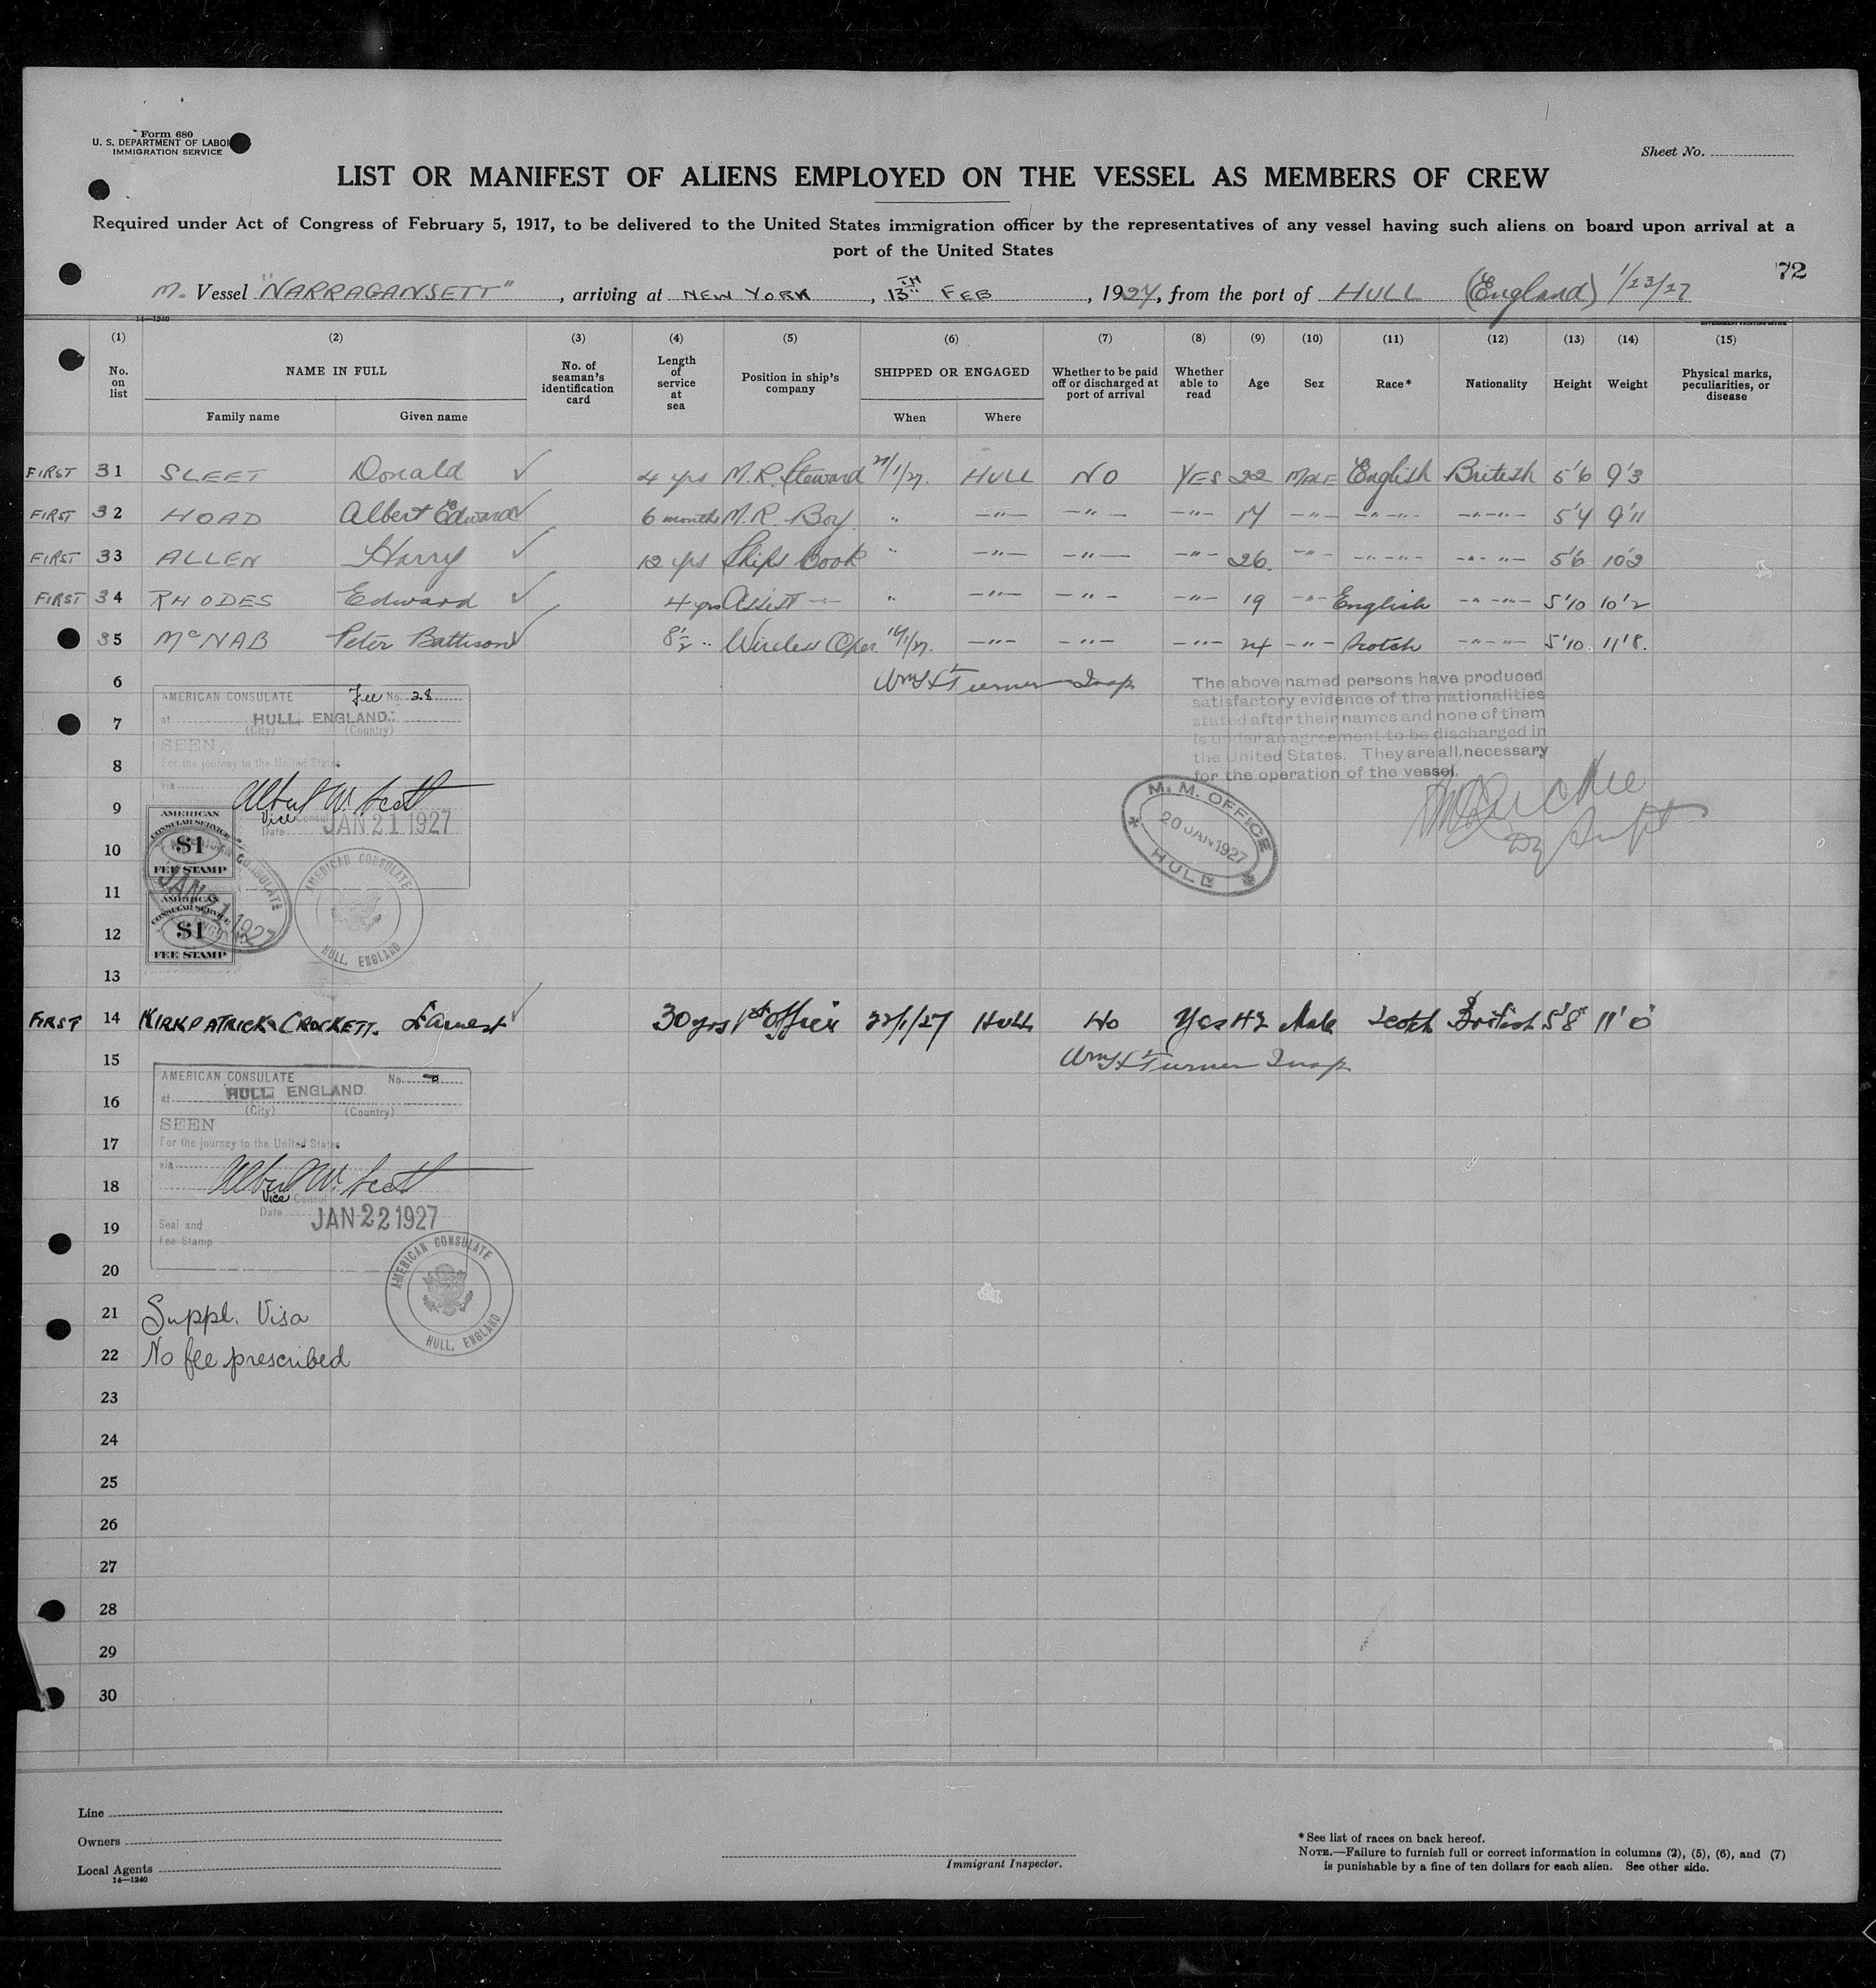 Form 680
U. S. DEPARTMENT OF LABOR
IMMIGRATION SERVICE
Sheet No.
LIST OR MANIFEST OF ALIENS EMPLOYED ON THE VESSEL AS MEMBERS OF CREW
Required under Act of Congress of February 5, 1917, to be delivered to the United States immigration officer by the representatives of any vessel having such aliens on board upon arrival at a
port of the United States
72
M. Vessel "NARRAGANSETT", arriving at NEW YORK, 13TH FEB, 1927, from the port of HULL (England) 1/23/27
14—1240
GOVERNMENT PRINTING OFFICE
(1) (2) (3) (4) (5) (6) (7) (8) (9) (10) (11) (12) (13) (14) (15)
No. on list
NAME IN FULL
Family name Given name
No. of seaman's identification card
Length of service at sea
Position in ship's company
SHIPPED OR ENGAGED
When Where
Whether to be paid off or discharged at port of arrival
Whether able to read
Age
Sex
Race*
Nationality
Height
Weight
Physical marks, peculiarities, or disease
FIRST 31 SLEET Donald ✓ 4 yrs M.R. Steward 21/1/27. HULL NO YES 22 MALE English British 5'6 9'3
FIRST 32 HOAD Albert Edward ✓ 6 months M.R. Boy " —"— —"— —"— 17 —"— —"— —"— 5'4 9'11
FIRST 33 ALLEN Harry ✓ 12 yrs Ships Cook " —"— —"— —"— 26. —"— —"— —"— 5'6 10'2
FIRST 34 RHODES Edward ✓ 4 yrs Assist — " —"— —"— —"— 19 —"— English —"— 5'10 10'2
35 McNAB Peter Battison ✓ 8½ " Wireless Oper. /1/27. —"— —"— —"— 24 —"— Scotch —"— 5'10. 11'8.
6
Wm H Turner Insp
AMERICAN CONSULATE Fee No. 28
at HULL, ENGLAND.
(City) (Country)
7
SEEN
For the journey to the United States
8
via
Albert W. Scott
Vice Consul
Date JAN 21 1927
9
The above named persons have produced
satisfactory evidence of the nationalities
stated after their names and none of them
is under an agreement to be discharged in
the United States. They are all necessary
for the operation of the vessel.
M. M. OFFICE
20 JAN 1927
HULL
AMERICAN
CONSULAR SERVICE
$1
FEE STAMP
10
AMERICAN CONSULATE
JAN 21 1927
11
AMERICAN
CONSULAR SERVICE
$1
FEE STAMP
12
AMERICAN CONSULATE
HULL, ENGLAND
13
FIRST 14 KIRKPATRICK CROCKETT. Earnest ✓ 30 yrs 1st Officer 22/1/27 Hull No Yes 42 Male Scotch British 5'8" 11'0
15
Wm H Turner Insp
AMERICAN CONSULATE No.
at HULL, ENGLAND
(City) (Country)
16
SEEN
17
For the journey to the United States
via
18
Albert W. Scott
Vice Consul
Date JAN 22 1927
19
Seal and
Fee Stamp
20
AMERICAN CONSULATE
HULL, ENGLAND
21 Suppl. Visa
22 No fee prescribed
23
24
25
26
27
28
29
30
Line
Owners
Local Agents
14—1240
Immigrant Inspector.
* See list of races on back hereof.
NOTE.—Failure to furnish full or correct information in columns (2), (5), (6), and (7)
is punishable by a fine of ten dollars for each alien. See other side.